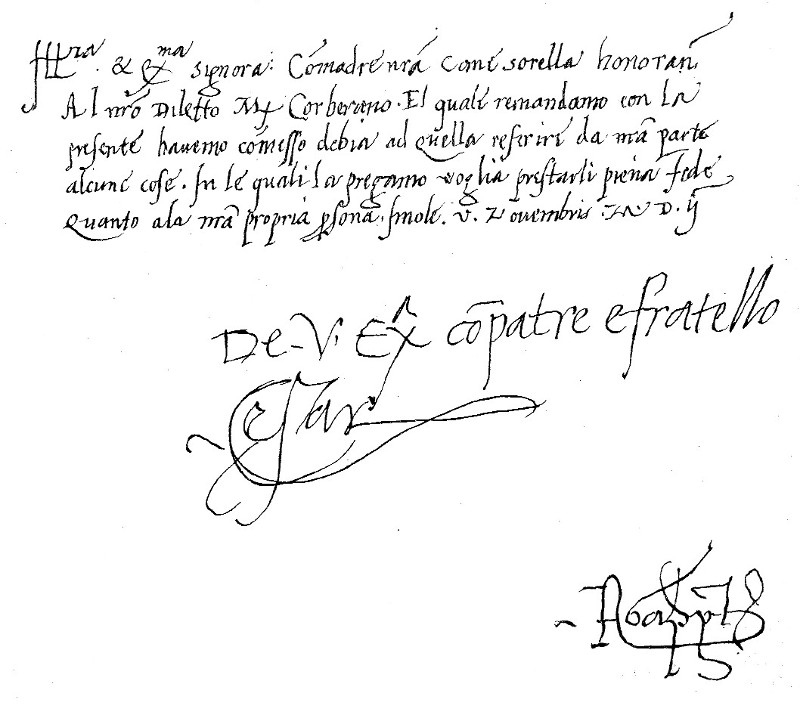 Illra. & Exma Signora: Cómadre nrã come sorella honoran
Al nrõ Diletto Corberano. El quale remandamo con la
presente havemo cómesso debia ad quella referire da nrã parte
alcune cose. In le quali la pregamo voglia prestarli piena fede
Quanto ala nrã propria psona. Imole. V. Novembris. D. ij
De. V. Exa cõpatre e fratello
Cesar